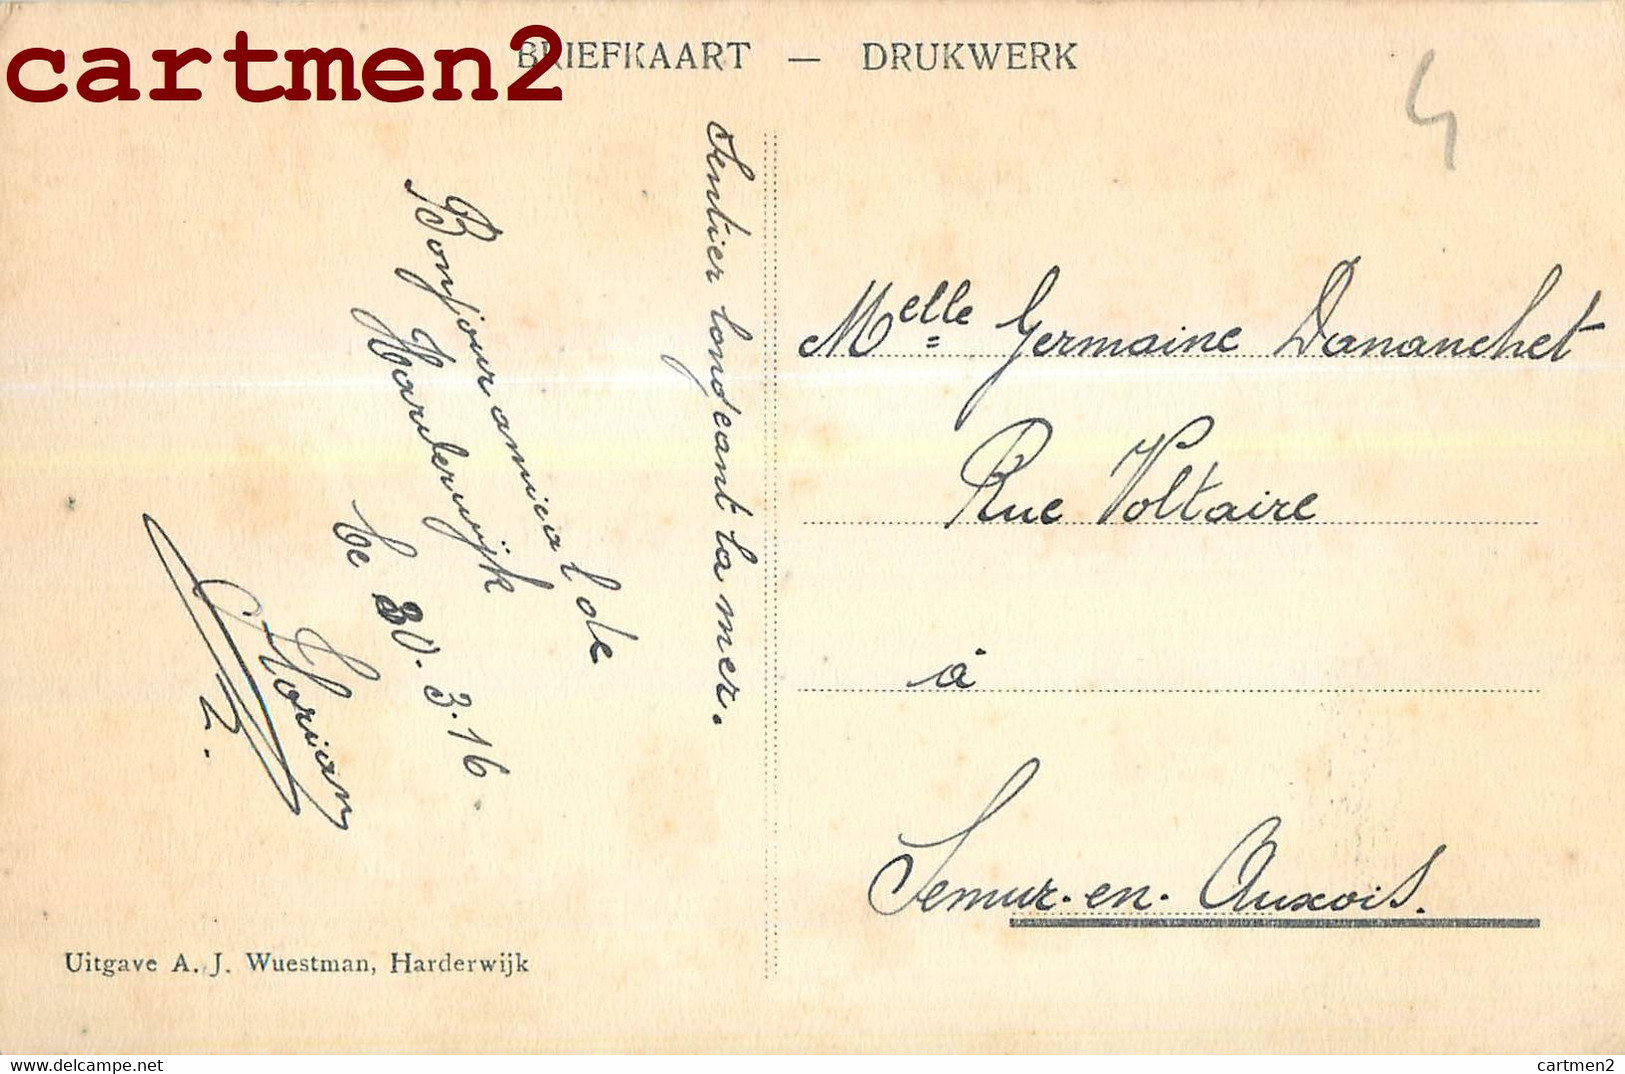 cartmen2
BRIEFKAART — DRUKWERK
4
Sentier longeant la mer.
Bonjour amical de
Harderwijk
le 30.3.16
Florian
2.
Melle Germaine Dananchet
Rue Voltaire
à
Semur-en-Auxois.
Uitgave A. J. Wuestman, Harderwijk
delcampe.net
cartmen2